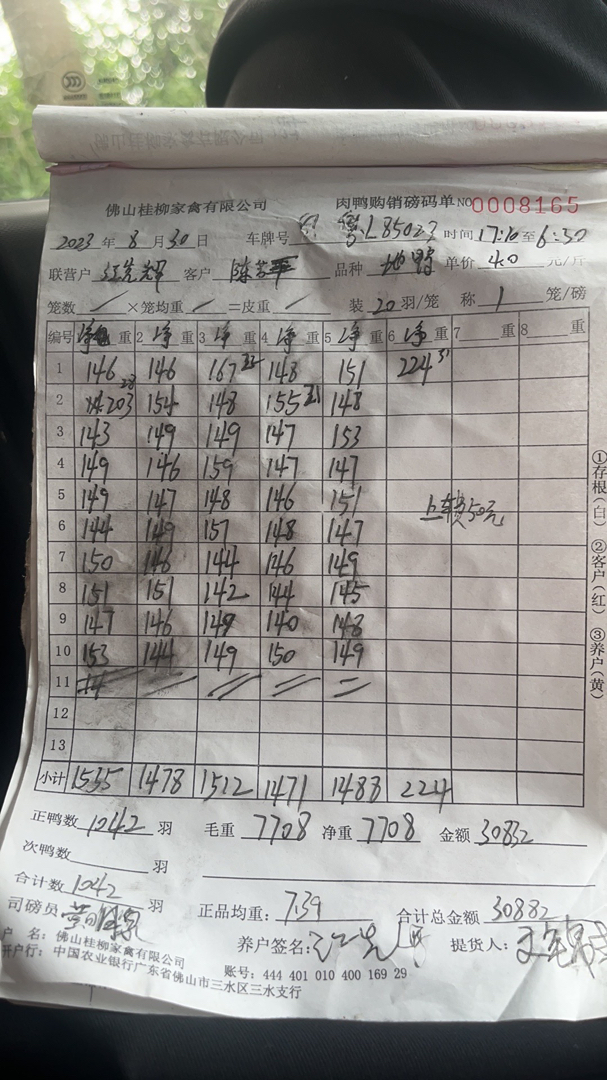 佛山桂柳家禽有限公司 肉鸭购销磅码单 NO 0008165
2023 年 8 月 30 日 车牌号 粤L85023 时间 17:10 至 6:30
联营户 客户 陈 品种 单价 4.0 元/斤
笼数 / ×笼均重 / =皮重 / 装 20 羽/笼 称 1 笼/磅
编号 净 重 2 净 重 3 净 重 4 净 重 5 净 重 6 净 重 7 重 8 重
1 146 146 167 143 151 224 31
2 203 28 154 148 155 21 148
3 143 149 149 147 153
4 149 146 159 147 147
5 149 147 148 146 151
上车费50元
6 144 149 157 148 147
7 150 146 144 146 149
8 151 151 142 144 145
9 147 146 149 140 148
10 153 144 149 150 149
11
12
13
小计 1535 1478 1512 1471 1488 224
正鸭数 1042 羽 毛重 7708 净重 7708 金额 30832
次鸭数 羽
合计数 1042 羽
司磅员 正品均重: 7.39 合计总金额 30882
户 名: 佛山桂柳家禽有限公司 养户签名: 提货人:
开户行: 中国农业银行广东省佛山市三水区三水支行 账号: 444 401 010 400 169 29
①存根(白) ②客户(红) ③养户(黄)